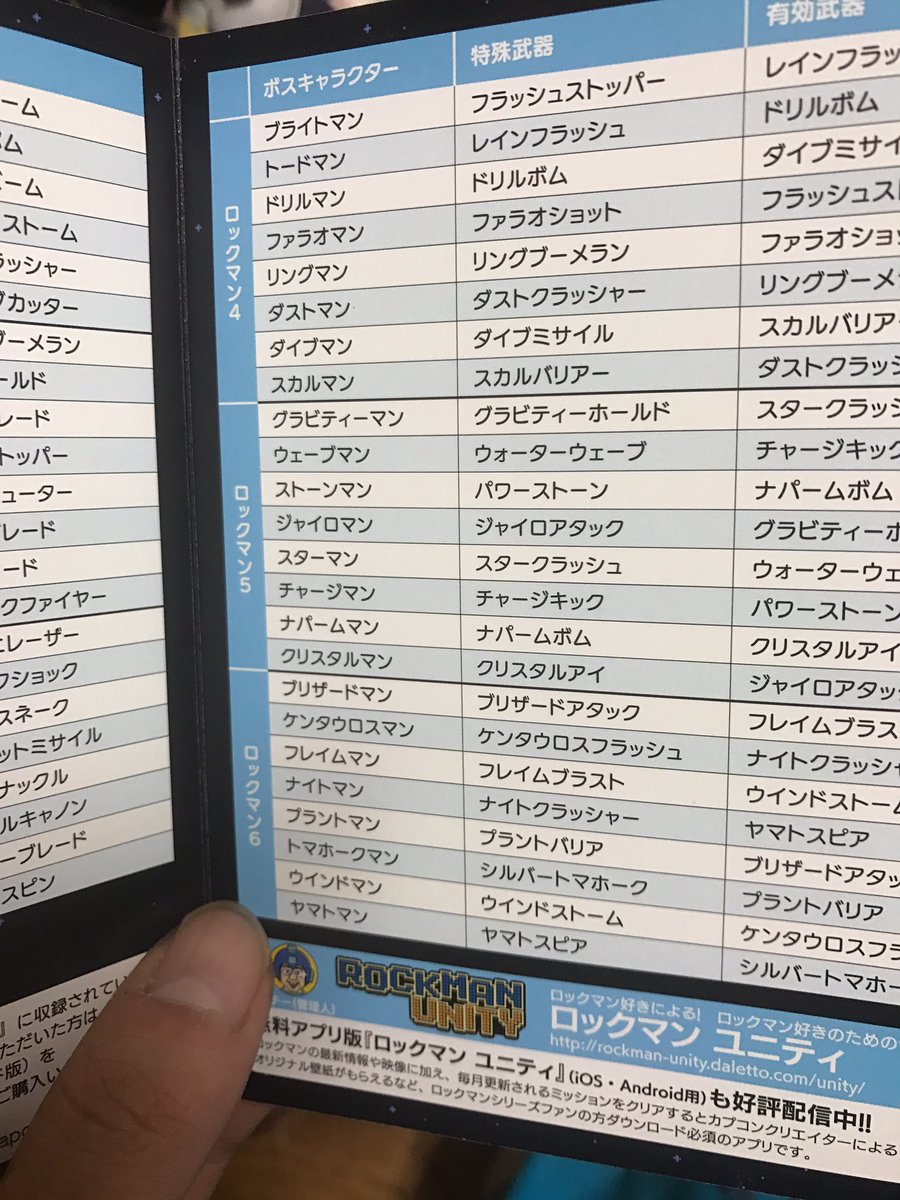 ーム
ボム
ビーム
ストーム
ラッシャー
カッター
ブーメラン
ールド
レード
トッパー
ューター
ブレード
ード
クファイヤー
レーザー
クショック
スネーク
ットミサイル
ナックル
ルキャノン
ーブレード
スピン
』に収録されてい
ただいた方は
版）を
ご購入い
ボスキャラクター 特殊武器 有効武器
ロックマン4
ブライトマン フラッシュストッパー レインフラッ
トードマン レインフラッシュ ドリルボム
ドリルマン ドリルボム ダイブミサイ
ファラオマン ファラオショット フラッシュス
リングマン リングブーメラン ファラオショ
ダストマン ダストクラッシャー リングブーメ
ダイブマン ダイブミサイル スカルバリア
スカルマン スカルバリアー ダストクラッシ
ロックマン5
グラビティーマン グラビティーホールド スタークラッシ
ウェーブマン ウォーターウェーブ チャージキック
ストーンマン パワーストーン ナパームボム
ジャイロマン ジャイロアタック グラビティーホ
スターマン スタークラッシュ ウォーターウェ
チャージマン チャージキック パワーストーン
ナパームマン ナパームボム クリスタルアイ
クリスタルマン クリスタルアイ ジャイロアタッ
ロックマン6
ブリザードマン ブリザードアタック フレイムブラス
ケンタウロスマン ケンタウロスフラッシュ ナイトクラッシャ
フレイムマン フレイムブラスト ウインドストーム
ナイトマン ナイトクラッシャー ヤマトスピア
プラントマン プラントバリア ブリザードアタッ
トマホークマン シルバートマホーク プラントバリア
ウインドマン ウインドストーム ケンタウロスフラ
ヤマトマン ヤマトスピア シルバートマホー
ROCKMAN
UNITY
ナー（管理人）
ロックマン好きによる! ロックマン好きのための
ロックマン ユニティ
http://rockman-unity.daletto.com/unity/
無料アプリ版『ロックマン ユニティ』(iOS・Android用)も好評配信中!!
ロックマンの最新情報や映像に加え、毎月更新されるミッションをクリアするとカプコンクリエイターによる
オリジナル壁紙がもらえるなど、ロックマンシリーズファンの方ダウンロード必須のアプリです。